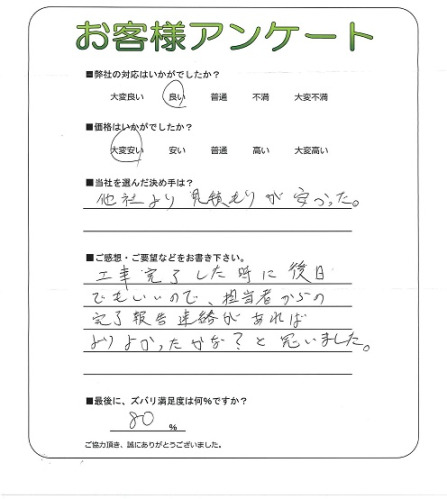 お客様アンケート
■弊社の対応はいかがでしたか?
大変良い 良い 普通 不満 大変不満
■価格はいかがでしたか?
大変安い 安い 普通 高い 大変高い
■当社を選んだ決め手は?
他社より見積もりが安かった。
■ご感想・ご要望などをお書き下さい。
工事完了した時に後日
でもいいので、担当者からの
完了報告連絡があれば
よりよかったかな?と思いました。
■最後に、ズバリ満足度は何%ですか?
80 %
ご協力頂き、誠にありがとうございました。